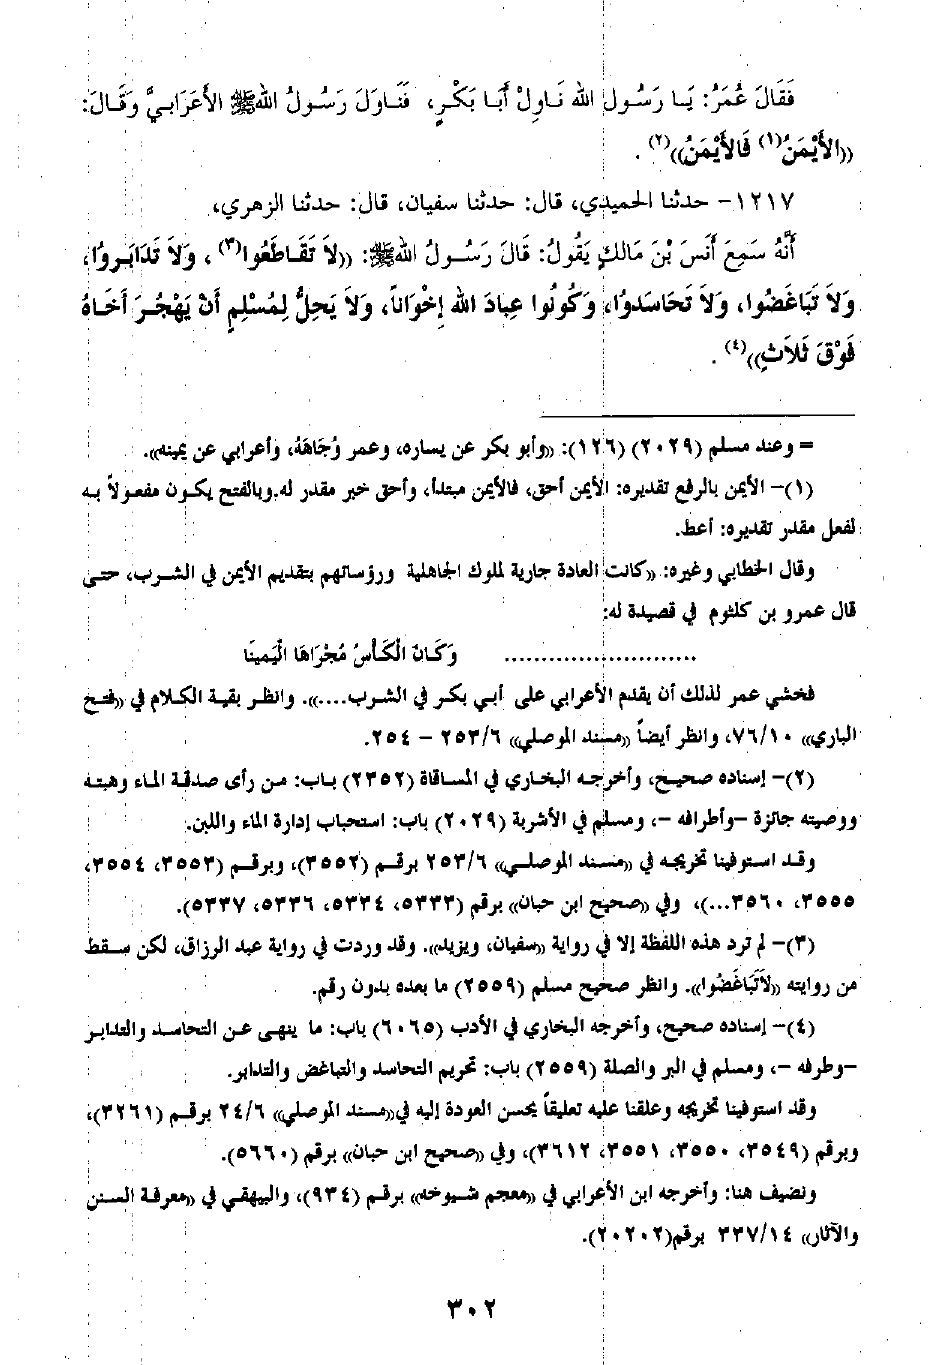 فَقَالَ عُمَرُ: يَا رَسُولَ اللهِ نَاوِلْ أَبَا بَكْرٍ، فَنَاوَلَ رَسُولُ اللهِ ﷺ الأَعْرَابيَّ وَقَالَ:
((الأَيْمَنُ(١) فَالأَيْمَنُ))(٢) .
١٢١٧- حدثنا الحميدي، قال: حدثنا سفيان، قال: حدثنا الزهري،
أَنَّهُ سَمِعَ أَنَسَ بْنَ مَالكٍ يَقُولُ: قَالَ رَسُولُ اللهِ ﷺ: ((لاَ تَقَاطَعُوا(٣) ، وَلاَ تَدَابَروُا،
وَلاَ تَبَاغَضُوا، وَلاَ تَحَاسَدوُا، وَكُونُوا عِبادَ اللهِ إخْوَاناً، وَلاَ يَحِلُّ لِمُسْلِمٍ أَنْ يَهْجُرَ أَخَاهُ
فَوْقَ ثَلاَثٍ))(٤) .
= وعند مسلم (٢٠٢٩) (١٢٦): ((وأبو بكر عن يساره، وعمر وُجَاهَهُ، وأعرابي عن يمينه)).
(١)- الأيمن بالرفع تقديره: الأيمن أحق، فالأيمن مبتدأ، وأحق خبر مقدر له.وبالفتح يكون مفعولاً به
لفعل مقدر تقديره: أعط.
وقال الخطابي وغيره: ((كانت العادة جارية لملوك الجاهلية ورؤسائهم بتقديم الأيمن في الشرب، حتى
قال عمرو بن كلثوم في قصيدة له:
.......................... وَكَانَ الْكَأْسُ مُجْرَاهَا الْيَمينَا
فخشي عمر لذلك أن يقدم الأعرابي على أبي بكر في الشرب....)). وانظر بقية الكلام في ((فتح
الباري)) ٧٦/١٠، وانظر أيضاً ((مسند الموصلي)) ٢٥٣/٦ - ٢٥٤.
(٢)- إسناده صحيح، وأخرجه البخاري في المساقاة (٢٣٥٢) باب: من رأى صدقة الماء وهبته
ووصيته جائزة -وأطرافه -، ومسلم في الأشربة (٢٠٢٩) باب: استحباب إدارة الماء واللبن.
وقد استوفينا تخريجه في ((مسند الموصلي)) ٢٥٣/٦ برقم (٣٥٥٢)، وبرقم (٣٥٥٣، ٣٥٥٤،
٣٥٥٥، ٣٥٦٠...)، وفي ((صحيح ابن حبان)) برقم (٥٣٣٣، ٥٣٣٤، ٥٣٣٦، ٥٣٣٧).
(٣)- لم ترد هذه اللفظة إلا في رواية ((سفيان، ويزيد)). وقد وردت في رواية عبد الرزاق، لكن سقط
من روايته ((لاَتَبَاغَضُوا)). وانظر صحيح مسلم (٢٥٥٩) ما بعده بدون رقم.
(٤)- إسناده صحيح، وأخرجه البخاري في الأدب (٦٠٦٥) باب: ما ينهى عن التحاسد والتدابر
-وطرفه -، ومسلم في البر والصلة (٢٥٥٩) باب: تحريم التحاسد والتباغض والتدابر.
وقد استوفينا تخريجه وعلقنا عليه تعليقاً يحسن العودة إليه في((مسند الموصلي)) ٢٤/٦ برقم (٣٢٦١)،
وبرقم (٣٥٤٩، ٣٥٥٠، ٣٥٥١، ٣٦١٢)، وفي ((صحيح ابن حبان)) برقم (٥٦٦٠).
ونضيف هنا: وأخرجه ابن الأعرابي في ((معجم شيوخه)) برقم (٩٣٤)، والبيهقي في ((معرفة السنن
والآثار)) ٣٣٧/١٤ برقم(٢٠٢٠٢).
٣٠٢